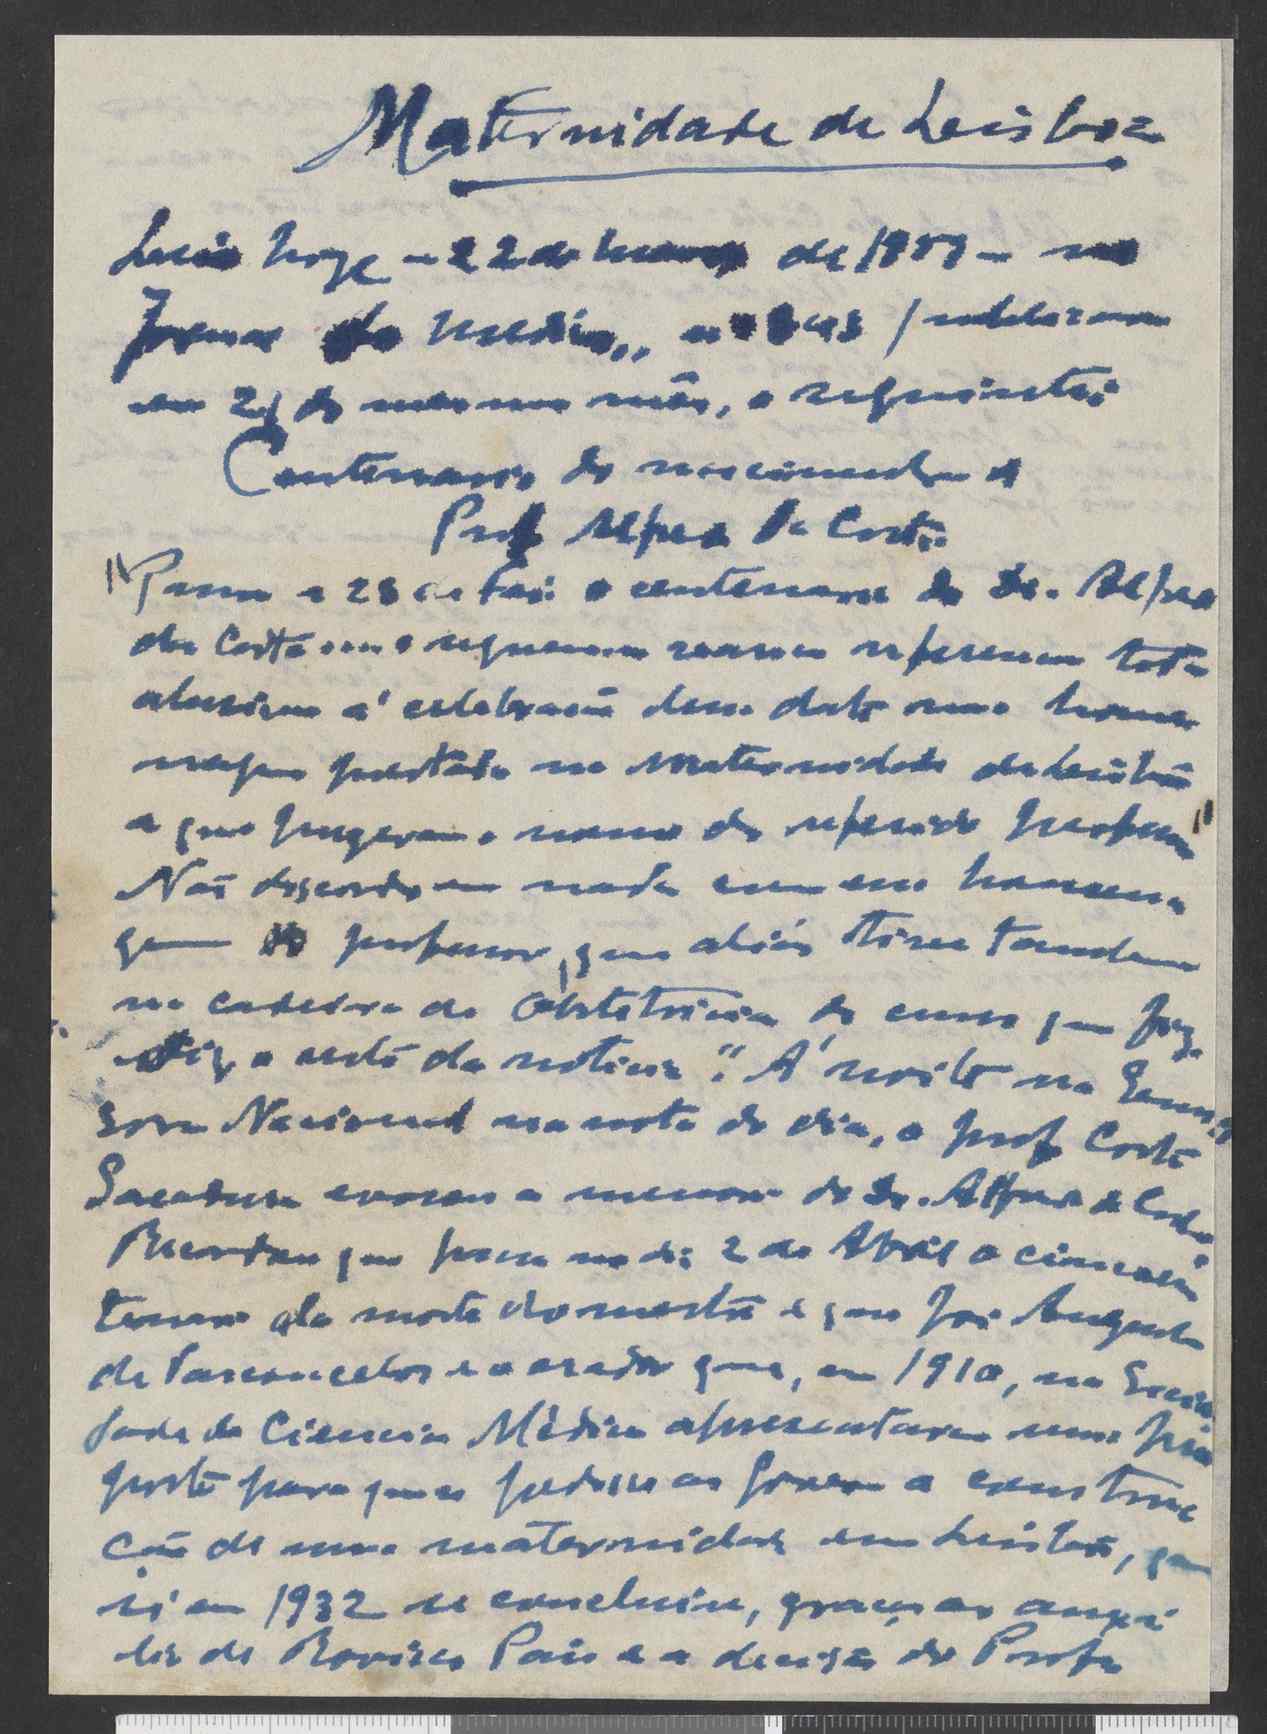 Maternidade de Lisboa
Leio hoje – 22 de Março de 1959 – no
Jornal do Médico, nº 843 / publicado
em 21 do mesmo mês, o seguinte:
Centenario do nascimento do
Prof Alfredo da Costa
"Passa a 28 o centenario do Dr. Alfredo
da Costa
alusiva á celebração dessa data uma home
nagem prestada na Maternidade de Lisboa
a que puzeram o nome do referido Professor"
Não discordo em nada com essa homena
gem ao professor, que aliás tive tambem
na cadeira de Obstetricia do curso que fiz.
Diz o resto da noticia: "Á noite na Emis
sora Nacional na nota do dia, o prof Costa
Sacadura evocou a memoria do Dr. Alfredo da Costa.
Recordou que passa no dia 2 de Abril o cincoen
tenario da morte do mestre e que foi Augusto
de Vasconcelos e o orador que, em 1910, na Socie
dade de Ciencias Médicas apresentaram uma pro
posta para que se pedisse ao Governo a constru
ção de uma maternidade em Lisboa, que
só em 1932 se concluiu, graças ao auxi
lio de Rovisco Pais e a decisão do Prof